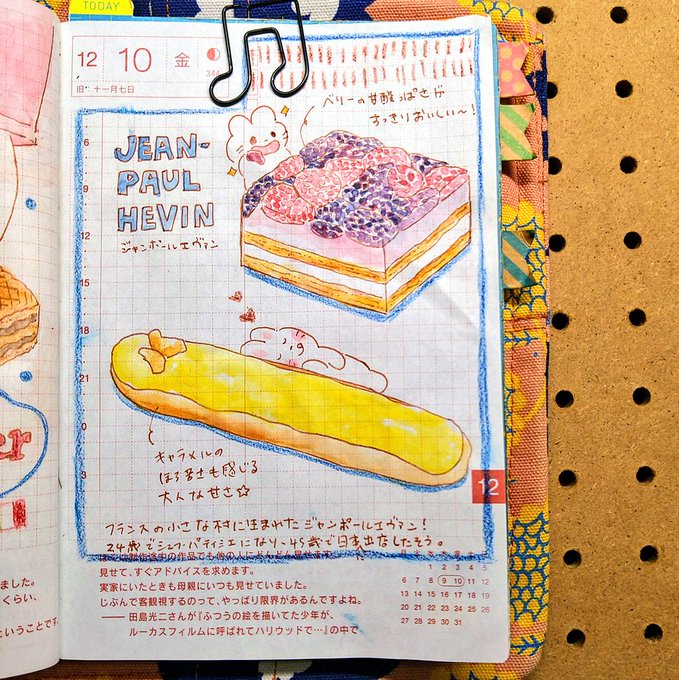 TODAY
12 10 金
344
旧 十一月七日
ベリーの甘酸っぱさが
すっきりおいしい〜!
JEAN-
PAUL
HEVIN
ジャンポールエヴァン
6
9
12
15
18
21
0
3
キャラメルの
ほろ苦さも感じる
大人な甘さ☆
12
フランスの小さな村に生まれたジャンポールエヴァン!
24歳でシェフ・パティシエになり、45歳で日本出店したそう。
月 火 水 木 金 土 日
1 2 3 4 5
6 7 8 9 10 11 12
13 14 15 16 17 18 19
20 21 22 23 24 25 26
27 28 29 30 31
見せて、すぐアドバイスを求めます。
実家にいたときも母親にいつも見せていました。
じぶんで客観視するのって、やっぱり限界があるんですよね。
―― 田島光二さんが『ふつうの絵を描いてた少年が、
ルーカスフィルムに呼ばれてハリウッドで…』の中で
er
ました。
くらい、
ということです